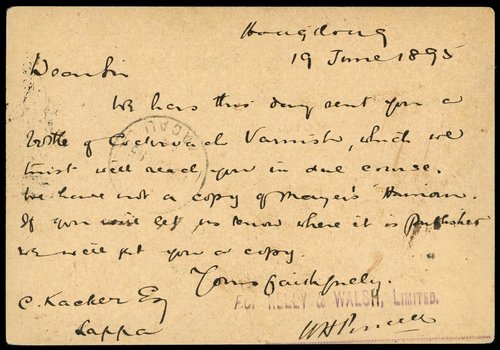 Hongkong
19 June 1895
Dear Sir
We have this day sent you a
bottle of Cockroach Varnish, which we
trust will reach you in due course.
We have not a copy of Mayer's
If you will let us know where it is published
we will get you a copy.
Yours faithfully,
FOR KELLY & WALSH, LIMITED.
C. Kacker Esq
Lappa